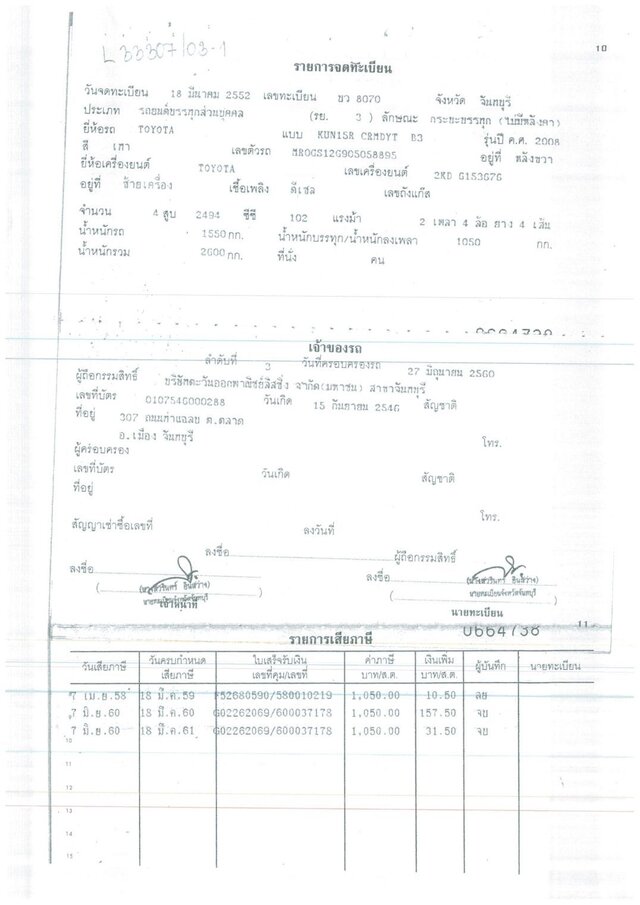 L33307/03-1
10
รายการจดทะเบียน
วันจดทะเบียน 18 มีนาคม 2552 เลขทะเบียน บว 8070 จังหวัด จันทบุรี
ประเภท รถยนต์บรรทุกส่วนบุคคล (รย. 3 ) ลักษณะ กระบะบรรทุก (ไม่มีหลังคา)
ยี่ห้อรถ TOYOTA แบบ KUN15R CRMDYT B3 รุ่นปี ค.ศ. 2008
สี เทา เลขตัวรถ MROCS12G905058895 อยู่ที่ หลังขวา
ยี่ห้อเครื่องยนต์ TOYOTA เลขเครื่องยนต์ 2KD 6153676
อยู่ที่ ซ้ายเครื่อง เชื้อเพลิง ดีเซล เลขถังแก๊ส
จำนวน 4 สูบ 2494 ซีซี 102 แรงม้า 2 เพลา 4 ล้อ ยาง 4 เส้น
น้ำหนักรถ 1550 กก. น้ำหนักบรรทุก/น้ำหนักลงเพลา 1050 กก.
น้ำหนักรวม 2600 กก. ที่นั่ง คน
0664738
เจ้าของรถ
ลำดับที่ 3 วันที่ครอบครองรถ 27 มิถุนายน 2560
ผู้ถือกรรมสิทธิ์ บริษัทตะวันออกพาณิชย์ลีสซิ่ง จำกัด(มหาชน) สาขาจันทบุรี
เลขที่บัตร 0107546000288 วันเกิด 15 กันยายน 2546 สัญชาติ
ที่อยู่ 307 ถนนท่าแฉลบ ต.ตลาด
อ.เมือง จันทบุรี โทร.
ผู้ครอบครอง
เลขที่บัตร วันเกิด สัญชาติ
ที่อยู่
โทร.
สัญญาเช่าซื้อเลขที่ ลงวันที่
ลงชื่อ ผู้ถือกรรมสิทธิ์
ลงชื่อ ลงชื่อ
นายทะเบียนจังหวัดจันทบุรี นายทะเบียนจังหวัดจันทบุรี
เจ้าหน้าที่ นายทะเบียน
0664738 11
รายการเสียภาษี
วันเสียภาษี วันครบกำหนดเสียภาษี ใบเสร็จรับเงิน เลขที่คุม/เลขที่ ค่าภาษี บาท/ส.ต. เงินเพิ่ม บาท/ส.ต. ผู้บันทึก นายทะเบียน
7 เม.ย.58 18 มี.ค.59 F52680590/580010219 1,050.00 10.50 ลย
7 มิ.ย.60 18 มี.ค.60 G02262069/600037178 1,050.00 157.50 จย
7 มิ.ย.60 18 มี.ค.61 G02262069/600037178 1,050.00 31.50 จย
10
11
12
13
14
15